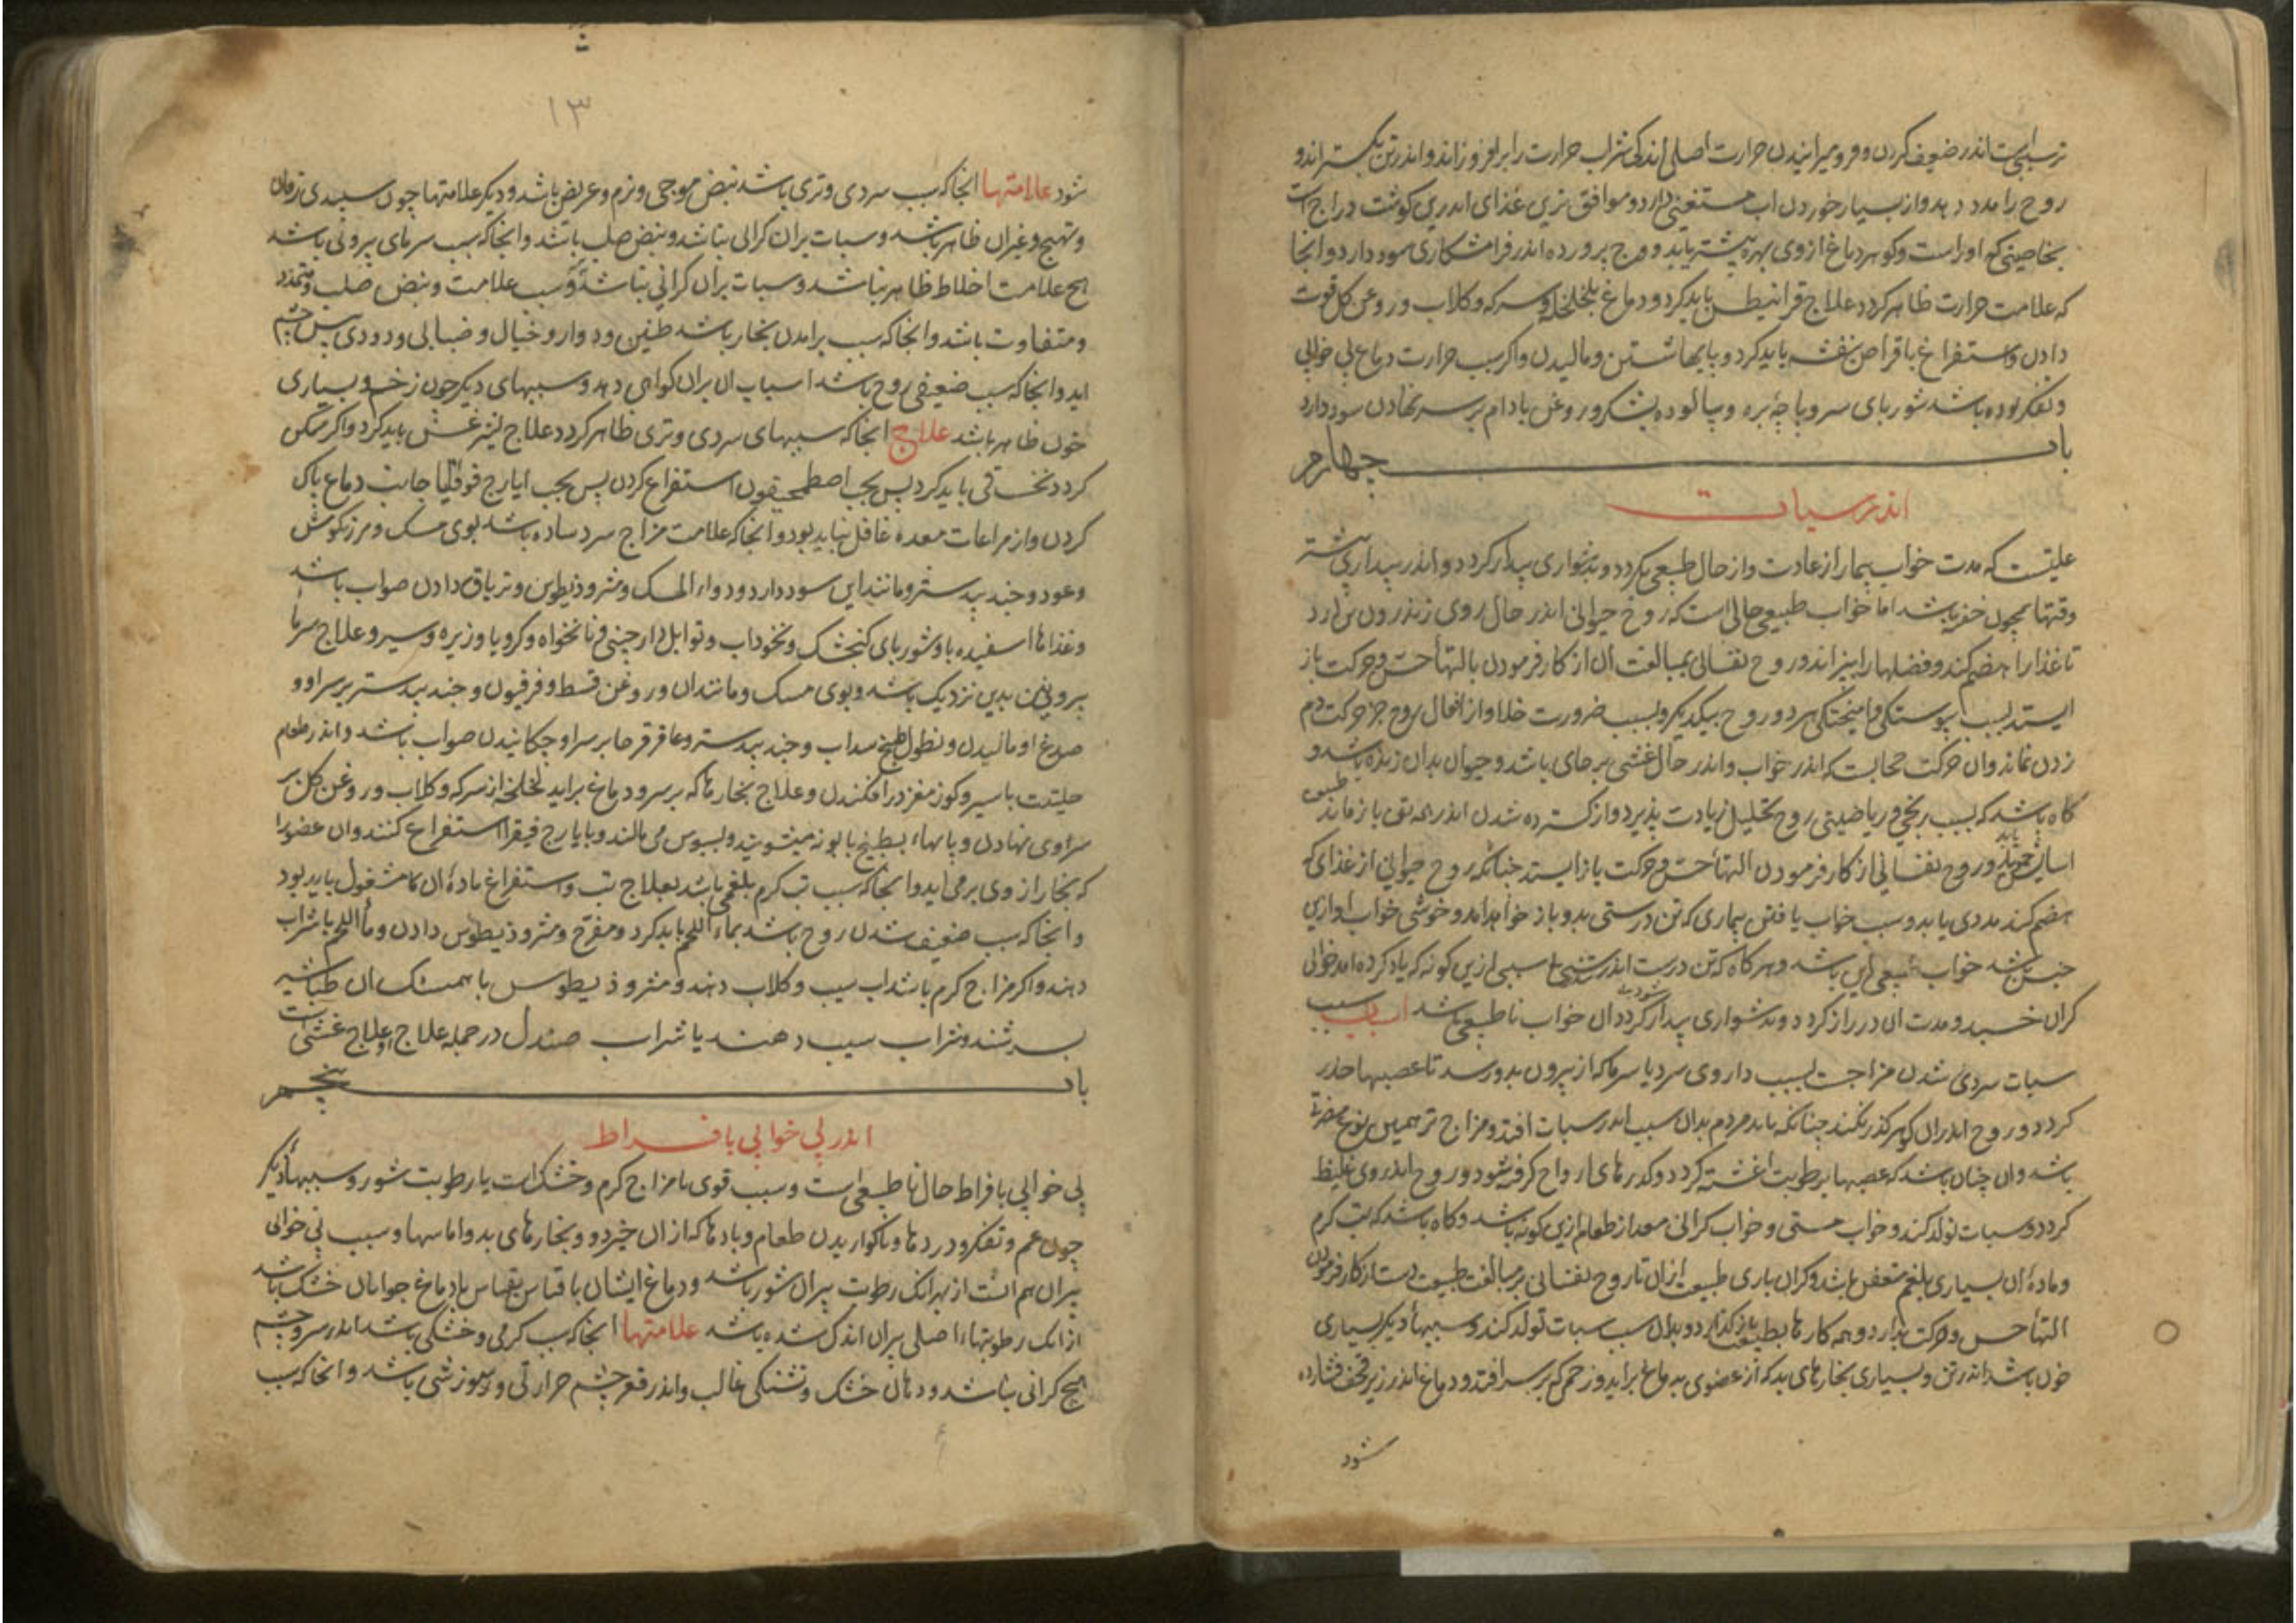 ترسببی است اندر ضعیف کردن و فرو میرانیدن حرارت اصلی اندکی شراب حرارت را برافروزاند و اندر تن بگستراند و
روح را مدد دهد و از بسیار خوردن آب مستغنی دارد و موافق ترین غذای اندرین گوشت دراج است
بخاصیتی که او راست و گوهر دماغ از وی بهره بیشتر یابد و پرورده اندر فرامشکاری سود دارد و آنجا
که علامت حرارت ظاهر گردد علاج قرانیطس باید کرد و دماغ بلخلخه و سرکه و کلاب و روغن کل قوت
دادن و استفراغ باقراص بنفشه باید کرد و پایها شستن و مالیدن و اگر سبب حرارت دماغ بی خوابی
و تفکر بوده باشد شوربای سر و پاچهٔ بره و پالوده بشکر و روغن بادام بر سر نهادن سود دارد
باب چهارم
اندر سبات
علتیست که مدت خواب بیمار از عادت و از حال طبیعی بگردد و بدشواری بیدار گردد و اندر بیداری بیشتر
وقتها همچون خفته باشد اما خواب طبیعی حالی است که روح حیوانی اندر حال روی زی اندرون تن آرد
تا غذا را هضم کند و فضلها را بپزاند و روح نفسانی بمبالغت آن از کار فرمودن بالتهأ حس و حرکت باز
ایستد بسبب پیوستکی و امیختکی هر دو روح بیکدیگر و بسبب ضرورت خلا و از افعال روح جز حرکت دم
زدن نماند و آن حرکت حجابست که اندر خواب و اندر حال غشی بر جای باشد و حیوان بدان زنده باشد و
کاه باشد که بسبب رنجی و ریاضتی روح تحلیل زیادت پذیرد و از کسترده شدن اندر همه تن باز ماند
اسایش جوید و روح نفسانی از کار فرمودن التهأ حس و حرکت باز ایستد چنانکه روح حیوانی از غذای که
هضم کند مددی یابد و سبب خواب یافتن بیماری که تن درستی بدو باز خواهد آمد و خوشی خواب او ازین
جنس باشد خواب طبیعی این باشد و هر کاه که تن درست اندر سببی ازین کونه که یاد کرده آمد خوابی
کران خسبد و مدت آن دراز کردد و بدشواری بیدار کردد آن خواب ناطبیعی باشد اسباب سبب
سبات سردی شدن مزاجست بسبب داروی سرد یا سرما که از بیرون بدو رسد تا عصبها خدر
کردد و روح اندران کوهر گذر نکند چنانکه باید مردم بدان سبب اندر سبات افتد و مزاج تر همین نوع مضرت
باشد و آن چنان باشد که عصبها برطوبت اغشته کردد و گذرهای ارواح کرفته شود و روح اندر وی غلیظ
کردد و سبات تولد کند و خواب مستی و خواب کرانی معده از طعام ازین کونه باشد و کاه باشد که تب کرم
و مادهٔ آن بسیاری بلغم متعفن باشد و کران باری طبیعت از آن تا روح نفسانی بر مبالغت طبیعت دست از کار فرمودن
التهأ حس و حرکت بدارد و همه کارها بطبیعت باز گذارد و بدان سبب سبات تولد کند و سببهأ دیگر بسیاری
خون باشد اندر تن و بسیاری بخارهای بد که از عضوی بدماغ براید و زخمی که بر سر افتد و دماغ اندر زیر قحف فشارده
شود
۱۳
شود علامتها آنجا که سبب سردی و تری باشد نبض موجی و نرم و عریض باشد و دیگر علامتها چون سپیدی زبان
و تهبج و غیر آن ظاهر باشد و سبات بران کرانی نباشد و نبض صلب باشد و آنجا که سبب سرمای بیرونی باشد
هیچ علامت اخلاط ظاهر نباشد و سبات بران کرانی نباشد و سبب علامت و نبض صلب و متمدد
و متفاوت باشد و آنجا که سبب برآمدن بخار باشد طنین و دوار و خیال و ضبابی و دودی پیش چشم
آید و آنجا که سبب ضعیفی روح باشد اسباب آن بران کواهی دهد و سببهای دیگر چون زخم و بسیاری
خون ظاهر باشد علاج آنجا که سببهای سردی و تری ظاهر کردد علاج لیثرغس باید کرد و اگر ممکن
کردد نخست قی باید کرد پس بحب اصطمخیقون استفراغ کردن پس بحب ایارج قوقایا جانب دماغ پاک
کردن و از مراعات معده غافل نباید بود و آنجا که علامت مزاج سرد ساده باشد بوی مسک و مرزنکوش
و عود و جند بیدستر و مانند این سود دارد و دواء المسک و مثرودیطوس و تریاق دادن صواب باشد
و غذاها اسفیدباو شوربای کنجشک و نخوداب و توابل دارچینی و نانخواه و کرویا و زیره و سیر و علاج سرما
بیرونی بدین نزدیک باشد و بوی مسک و مانند آن و روغن قسط و فرفیون و جند بیدستر بر سر او و
صدغ او مالیدن و نطول طبیخ سداب و جند بیدستر و عاقرقرحا بر سر او چکانیدن صواب باشد و اندر طعام
حلتیت با سیر و کوز مغز درافکندن و علاج بخارها که بر سر و دماغ براید لخلخه از سرکه و کلاب و روغن کل بر
سر او می نهادن و پایهاء بطبیخ بابونه میشویند و بسبوس می مالند و بایارج فیقرا استفراغ کنند و آن عضو را
که بخار از وی بر می آید و آنجا که سبب تب کرم بلغمی باشد بعلاج تب و استفراغ مادهٔ آن مشغول باید بود
و آنجا که سبب ضعیف شدن روح باشد بماء اللحم باید کرد و مفرح و مثرودیطوس دادن و مأ اللحم با شراب
دهند و اگر مزاج کرم باشد آب سیب و کلاب دهند و مثرودیطوس با همسنک آن طباشیر
بسرشند و شراب سیب دهند یا شراب صندل در جمله علاج او علاج غشی است
باب پنجم
اندر بی خوابی بافراط
بی خوابی بافراط حال ناطبیعی است و سبب قوی با مزاج کرم و خشک است یا رطوبت شور و سببهأ دیگر
چون غم و تفکر و دردها و ناکواریدن طعام و بادها که از آن خیزد و بخارهای بد و اماسها و سبب بی خوابی
پیران هم آنست از بهر انک رطوبت پیران شور باشد و دماغ ایشان بقیاس با دماغ جوانان خشک باشد
از انک رطوبتهاء اصلی پیران اندک شده باشد علامتها آنجا که سبب کرمی و خشکی باشد اندر سر و چشم
هیچ کرانی نباشد و دهان خشک و تشنکی غالب و اندر قعر چشم حرارتی و سوزشی باشد و آنجا که سبب